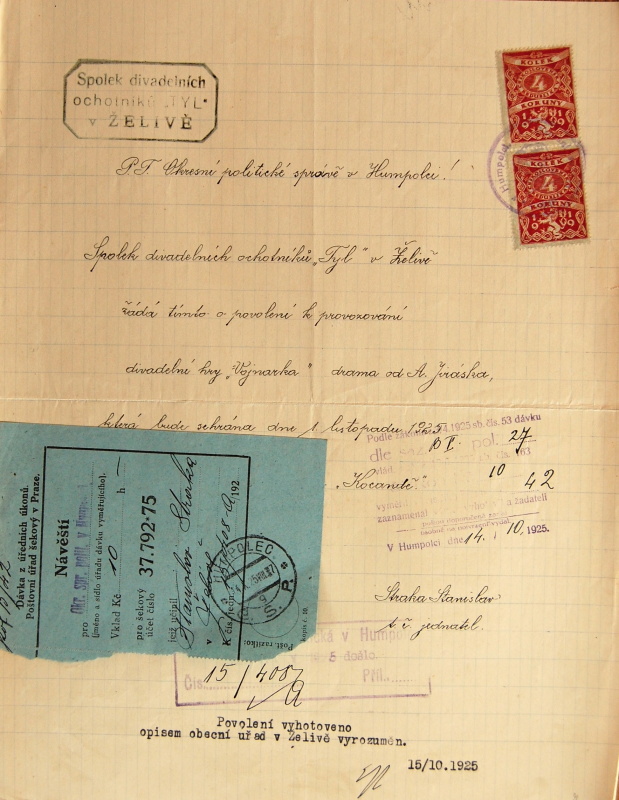 Spolek divadelních
ochotníků „TYL“
v ŽELIVĚ
KOLEK
4
KORUNY
1919
KOLEK
4
KORUNY
1919
Humpolec
P.T. Okresní politické správě v Humpolci!
Spolek divadelních ochotníků „Tyl“ v Želivě
žádá tímto o povolení k provozování
divadelní hry „Vojnarka“ drama od A. Jiráska,
která bude sehrána dne 1 listopadu 1925
„Kocandě“.
Podle zákona 1925 sb. čís. 53 dávku
dle pol. 27
10
42
zaznamenal
V Humpolci dne 14. 10. 1925.
Straka Stanislav
t.č. jednatel.
Dávka z úředních úkonů.
Poštovní úřad šekový v Praze.
Návěští
pro
(jméno a sídlo úřadu dávku vyměřujícího).
Vklad Kč 10 h —
pro šekový
účet číslo 37.792·75
jejž učinil
Stanislav Straka
v Želivě
K čís. jedn. 192
Pošt. razítko:
HUMPOLEC
v Humpol
5 došlo.
Čís. 15/4087 Příl.
Povolení vyhotoveno
opisem obecní uřad v Želivě vyrozuměn.
15/10.1925